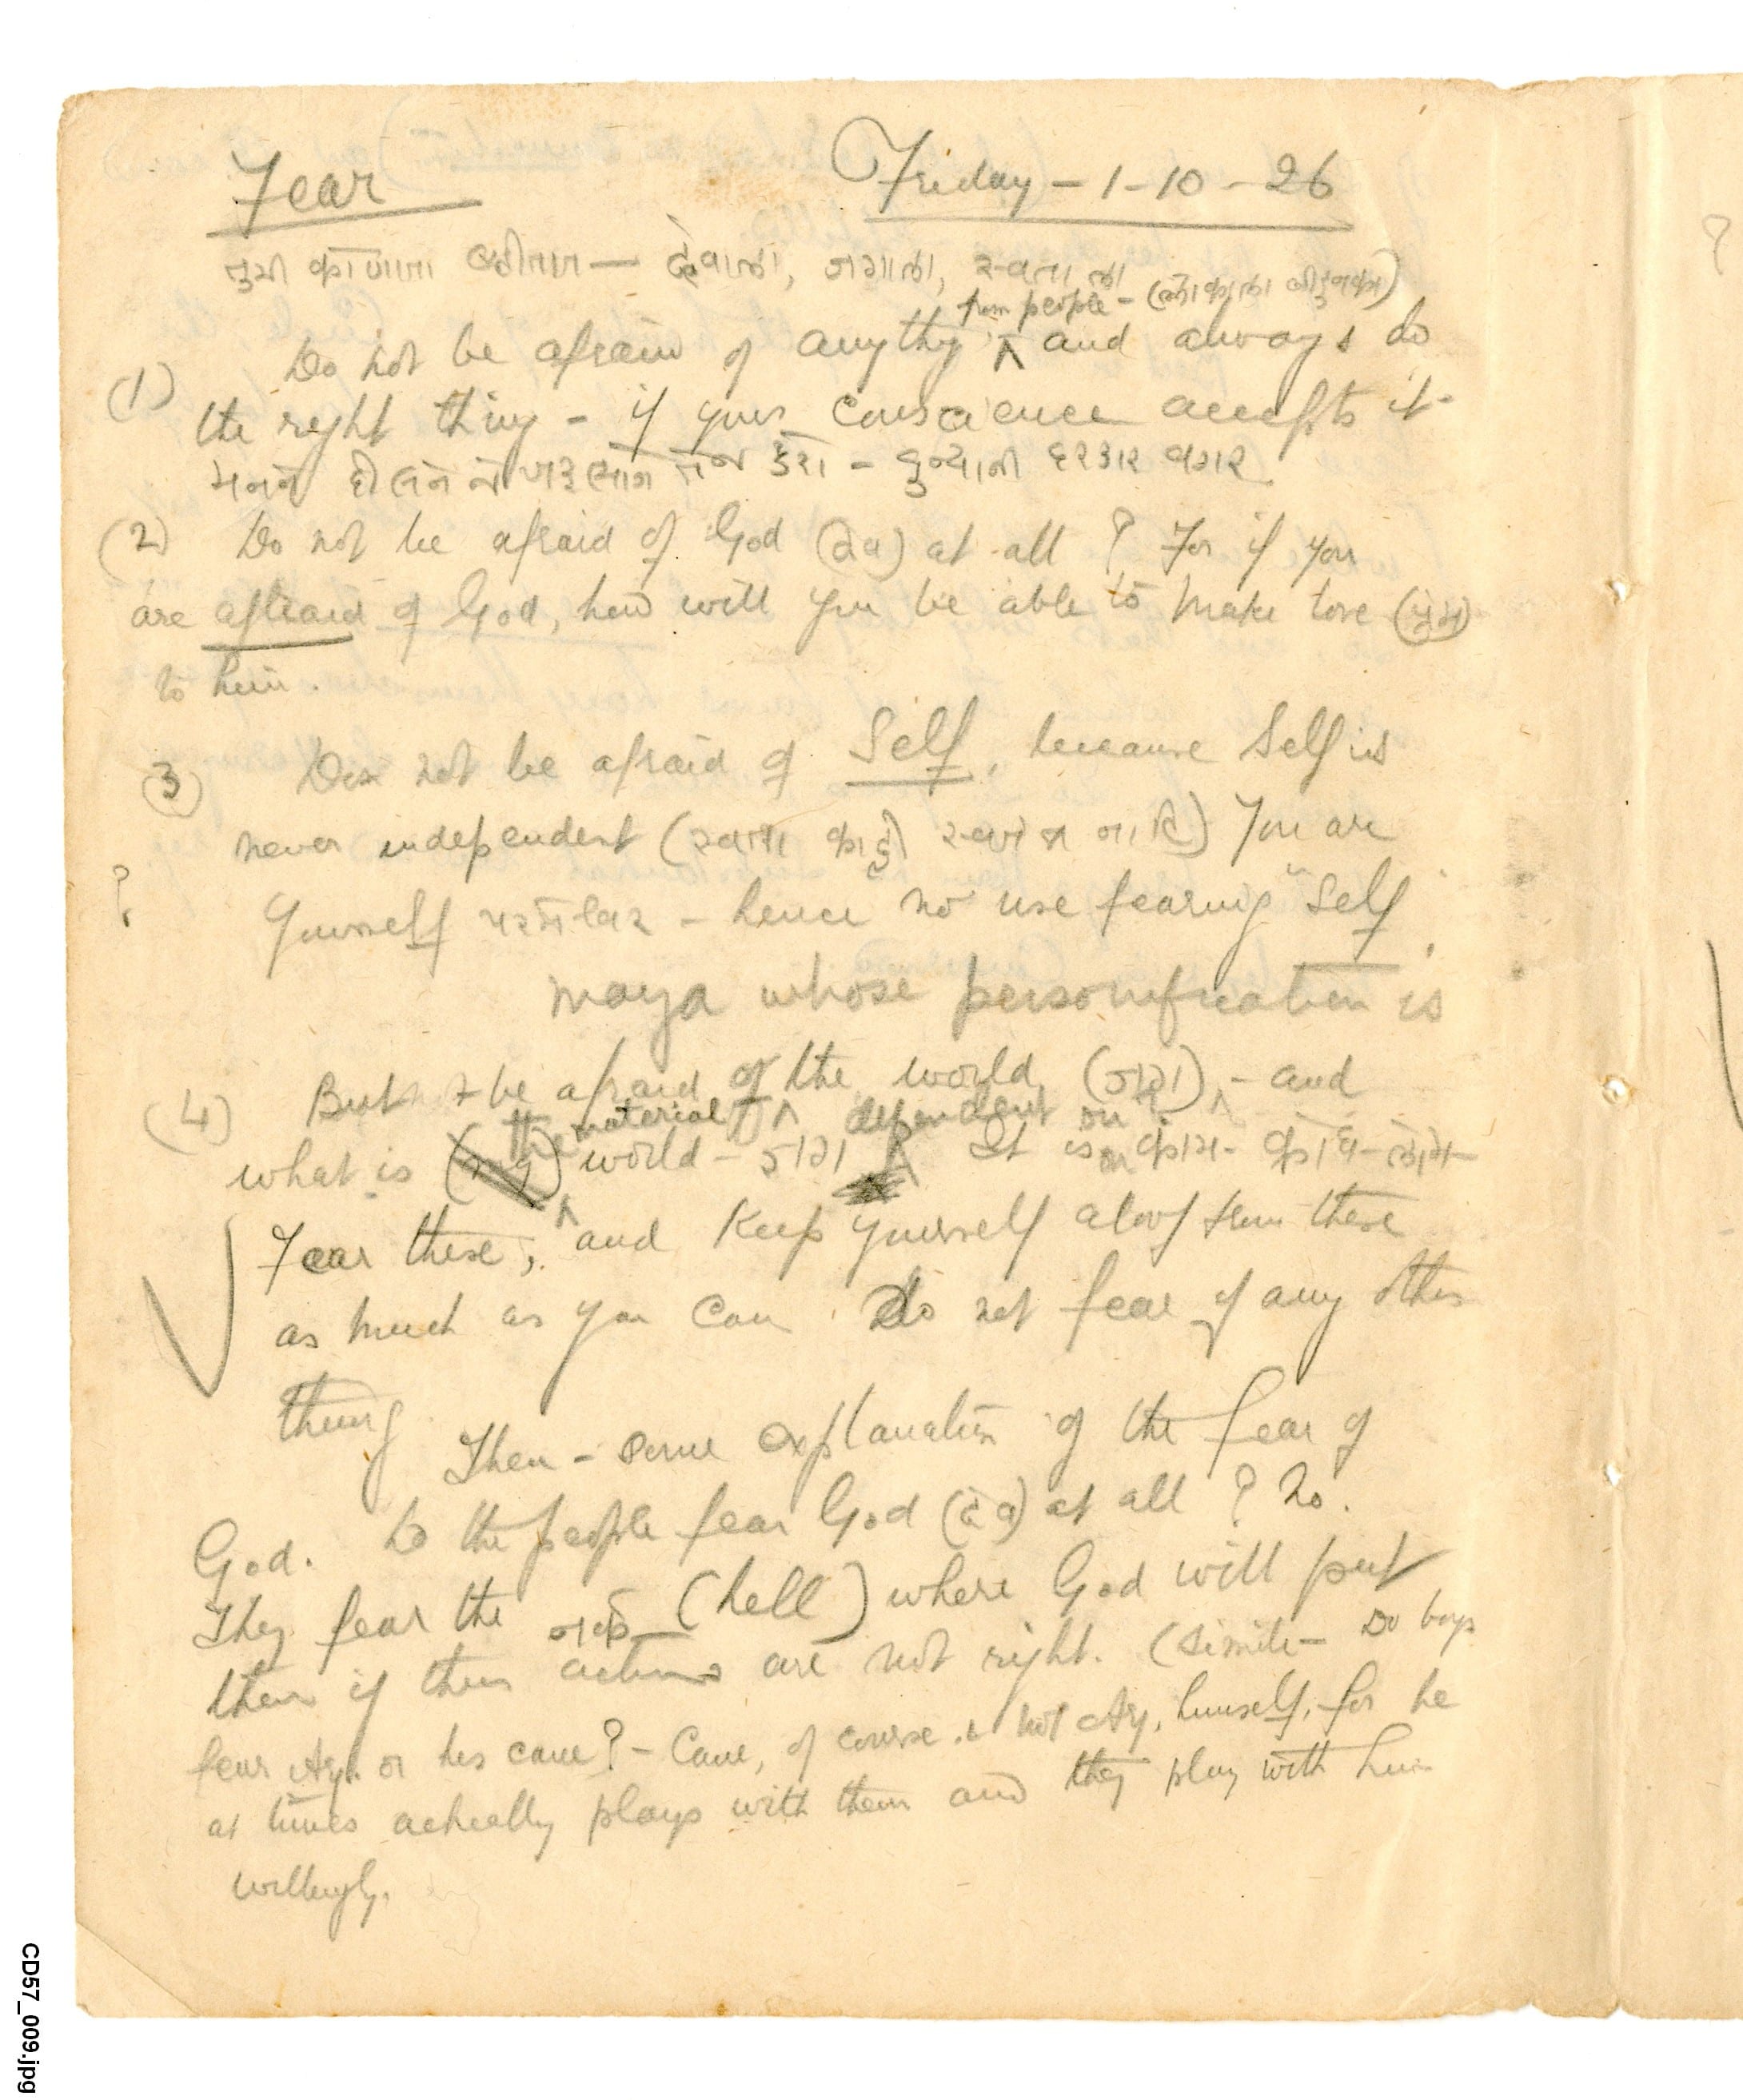 Fear
Friday - 1-10-26
from people -
(1) Do not be afraid of anything and always do
the right thing - if your conscience accepts it -
(2) Do not be afraid of God (देव) at all ? For if you
are afraid of God, how will you be able to make love (प्रेम)
to him.
(3) Do not be afraid of Self, because Self is
never independent ( ) You are
?
Yourself - hence no use fearing "Self".
maya whose personification is
(4) But be afraid of the world, - and
the material dependent on
what is world - It is काम - क्रोध -
Fear these, and keep yourself aloof from these
as much as you can. Do not fear of any other
thing
Then - some explanation of the fear of
God. Do the people fear God (देव) at all ? No.
They fear the नर्क (hell) where God will put
them if their actions are not right. (Simile - Do boys
fear Ag. or his cane ? - Cane, of course & not Ag. himself, for he
at times actually plays with them and they play with him
willingly.
CD57_009.jpg